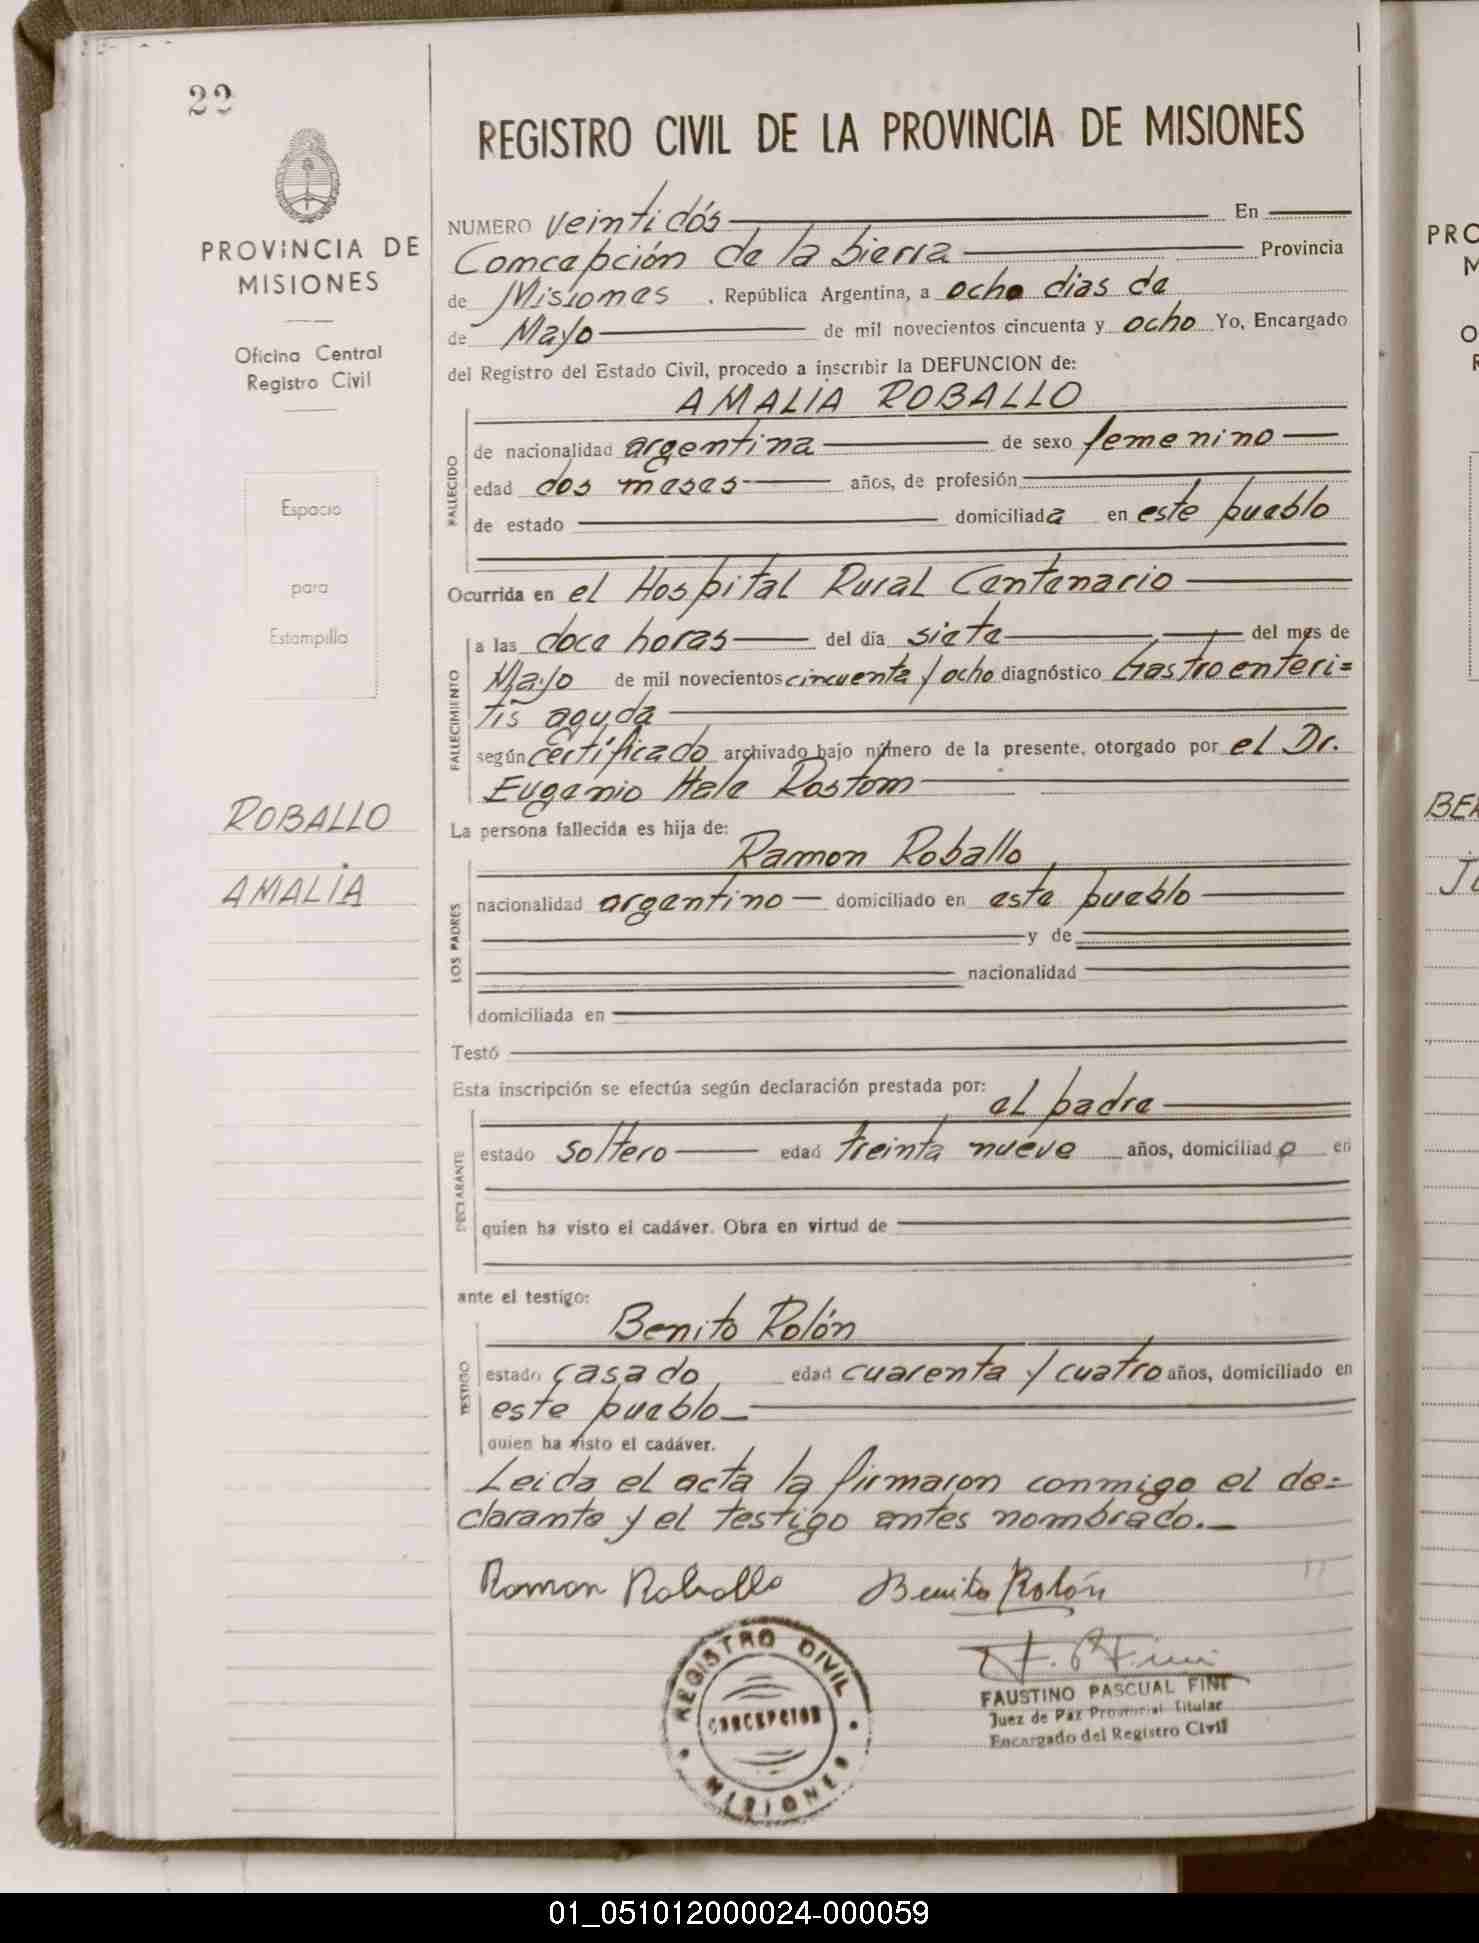 22
PROVINCIA DE
MISIONES
Oficina Central
Registro Civil
Espacio
para
Estampilla
ROBALLO
AMALIA
REGISTRO CIVIL DE LA PROVINCIA DE MISIONES
NUMERO veintidós En
Concepción de la Sierra Provincia
de Misiones , República Argentina, a ocho dias de
de Mayo de mil novecientos cincuenta y ocho Yo, Encargado
del Registro del Estado Civil, procedo a inscribir la DEFUNCION de:
AMALIA ROBALLO
FALLECIDO
de nacionalidad argentina de sexo femenino
edad dos meses años, de profesión
de estado domiciliada en este pueblo
Ocurrida en el Hospital Rural Centenario
FALLECIMIENTO
a las doce horas del día siete del mes de
Mayo de mil novecientos cincuenta y ocho diagnóstico Gastroenteri=
tis aguda
según certificado archivado bajo número de la presente, otorgado por el Dr.
Eugenio Hale Rostom
La persona fallecida es hija de:
Ramon Roballo
LOS PADRES
nacionalidad argentino domiciliado en este pueblo
y de
nacionalidad
domiciliada en
Testó
Esta inscripción se efectúa según declaración prestada por:
el padre
DECLARANTE
estado soltero edad treinta nueve años, domiciliado en
quien ha visto el cadáver. Obra en virtud de
ante el testigo:
Benito Rolón
TESTIGO
estado casado edad cuarenta y cuatro años, domiciliado en
este pueblo
quien ha visto el cadáver.
Leida el acta la firmaron conmigo el de=
clarante y el testigo antes nombrado.
Ramon Roballo Benito Rolón
REGISTRO CIVIL
CONCEPCION
MISIONES
FAUSTINO PASCUAL FINI
Juez de Paz Provincial Titular
Encargado del Registro Civil
PRO
M
O
R
BER
JU
01_051012000024-000059